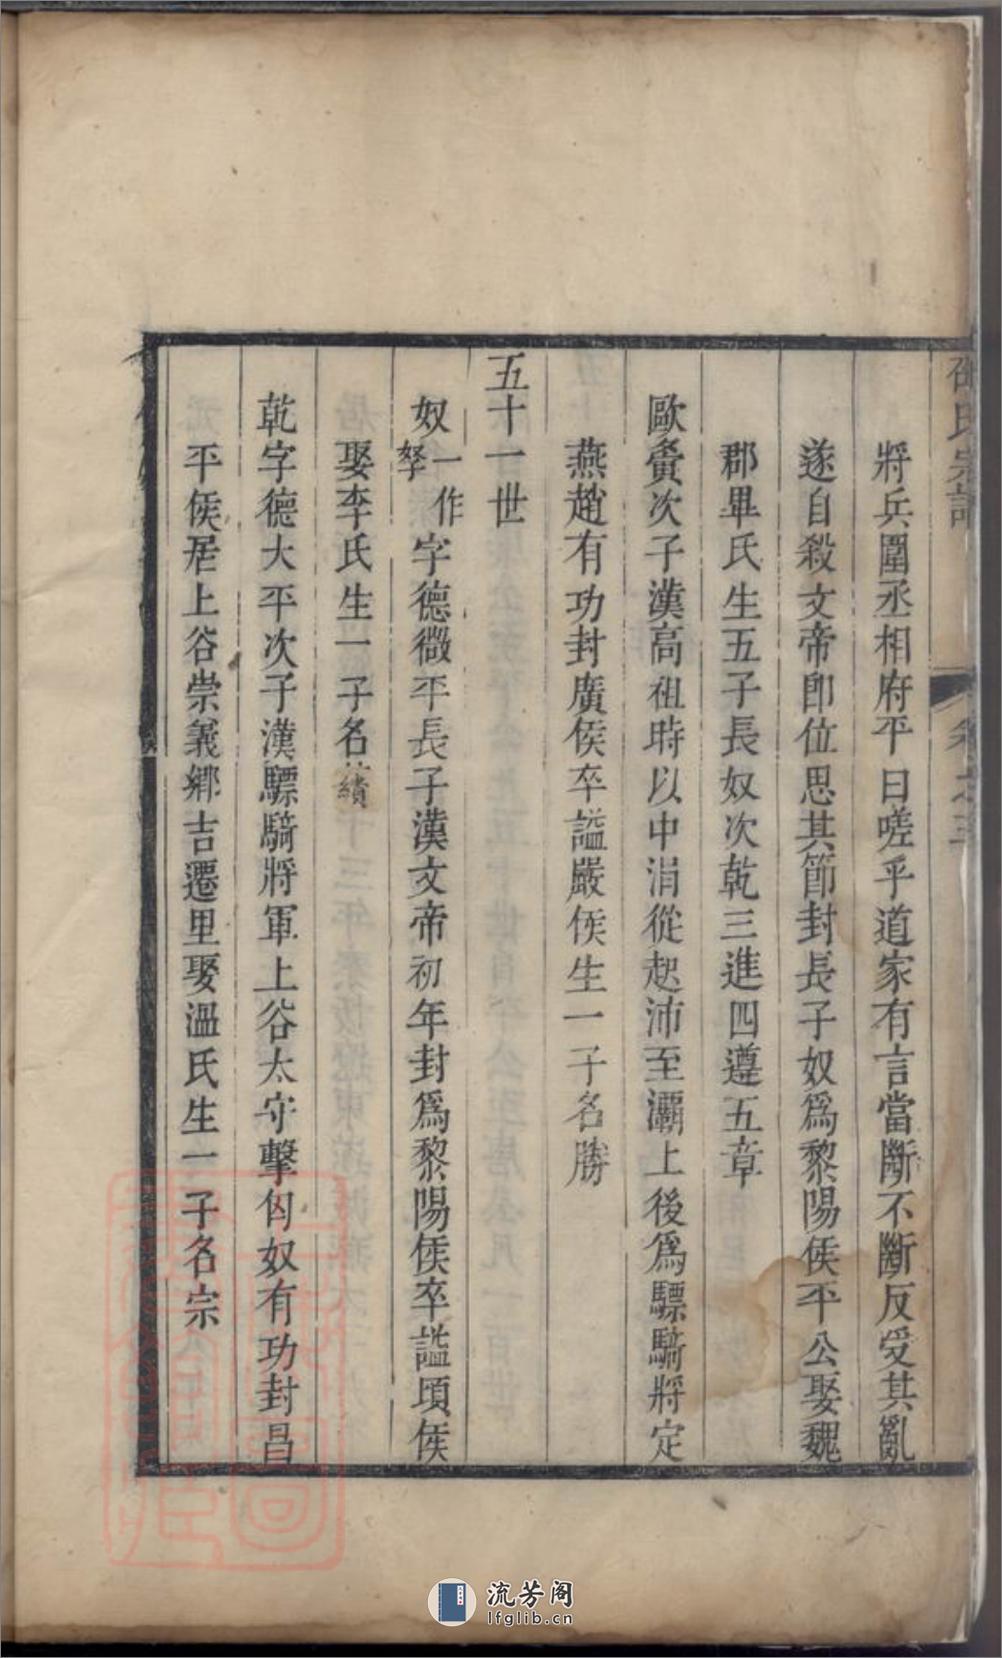 將兵圍丞相府平曰嗟乎道家有言當斷不斷反受其亂
遂自殺文帝卽位思其節封長子奴爲黎陽侯平公娶魏
郡畢氏生五子長奴次乾三進四遵五章
歐次子漢高祖時以中涓從起沛至灞上後爲驃騎將定
燕趙有功封廣侯卒謚嚴侯生一子名勝
五十一世
奴一作孥字德微平長子漢文帝初年封爲黎陽侯卒謚頃侯
娶李氏生一子名續
乾字德大平次子漢驃騎將軍上谷太守擊匈奴有功封昌
平侯居上谷崇義鄉吉遷里娶溫氏生一子名宗
流芳阁
lfglib.cn